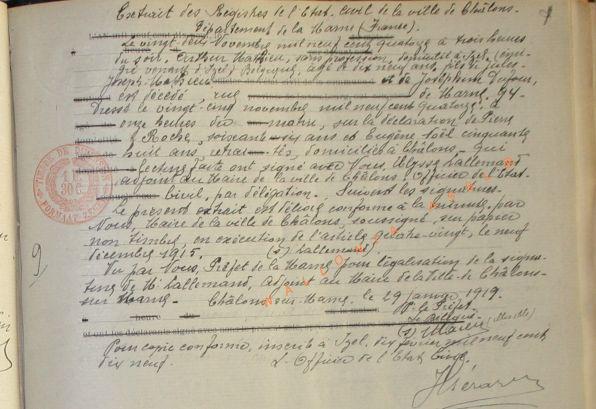 Extrait des Registres de l'Etat Civil de la ville de Châlons.
Département de la Marne (France).
Le vingt deux Novembre mil neuf cent quatorze à trois heures
du soir, Arthur Mathieu, sans profession, domicilié à Izel,
venant d'Izel) Belgique, âgé de dix neuf ans, fils de Jules
Joseph Mathieu et de Joséphine Dufour,
est décédé rue de Marne, 94
Dressé le vingt-cinq novembre mil neuf cent quatorze à
onze heures du matin, sur la déclaration de Pierre
Roche, soixante six ans et Eugène Noël cinquante
huit ans, retraités, domiciliés à Châlons, qui
lecture faite ont signé avec Nous, Ulysse Lallemand
adjoint au Maire de la ville de Châlons, Officier de l'Etat
Civil, par délégation. Suivent les signatures.
Le présent extrait est délivré conforme à la minute, par
Nous, Maire de la ville de Châlons, soussigné, sur papier
non timbré, en exécution de l'article quatre-vingt, le neuf
décembre 1915. (s) Lallemand
Vu par Nous, Préfet de la Marne pour légalisation de la signa-
ture de Mr Lallemand, adjoint au Maire de la Ville de Châlons-
sur Marne. Châlons sur Marne, le 29 Janvier 1919.
Pr le Préfet,
Le Délégué
(s) Maillé
Pour copie conforme, inscrit à Izel, dix février mil neuf cent
dix neuf. L'Officier de l'Etat Civil,
9